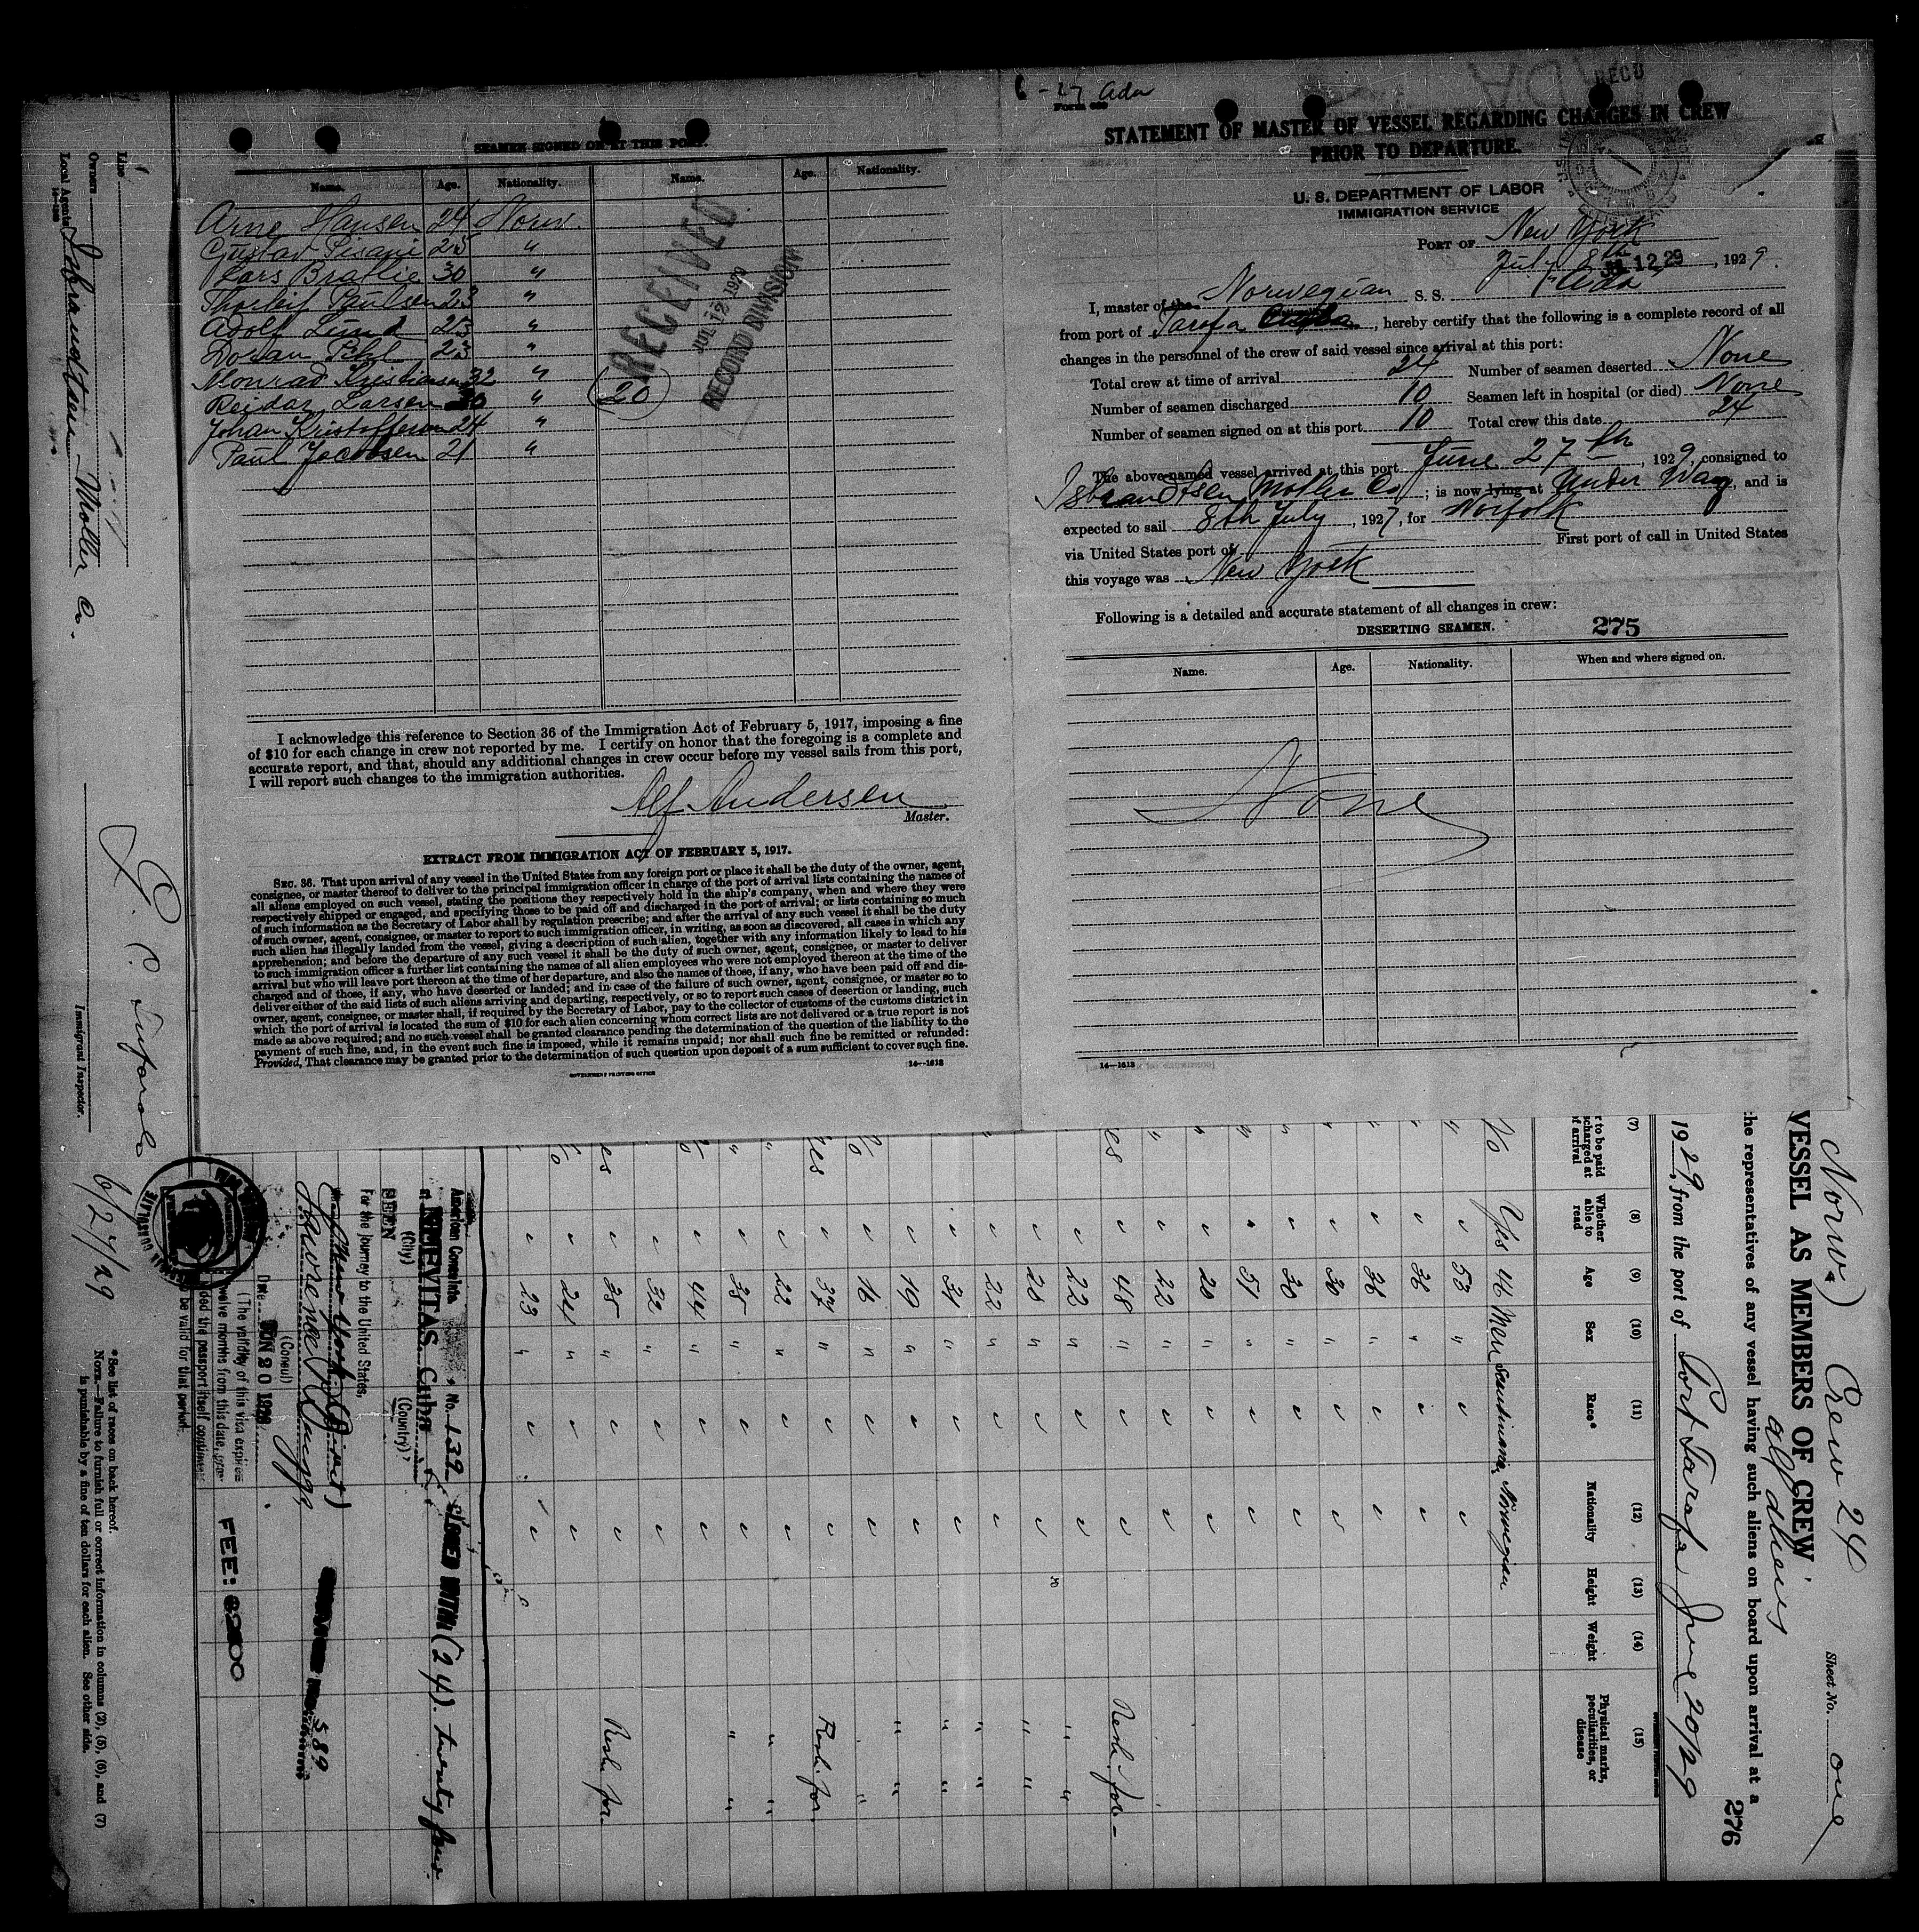 SEAMEN SIGNED ON AT THIS PORT.
Name. Age. Nationality. Name. Age. Nationality.
Arne Hansen 24 Norw.
Gustav Pisani 25 "
Lars Bratlie 30 "
Thorleif Paulsen 23 "
Adolf Lund 25 "
Pihl 23 "
Monrad Kristiansen 32 "
Reidar Larsen 30 "
Johan Kristoffersen 24 "
Paul Jacobsen 21 "
(20)
RECEIVED
JUL 12 1929
RECORD DIVISION
I acknowledge this reference to Section 36 of the Immigration Act of February 5, 1917, imposing a fine
of $10 for each change in crew not reported by me. I certify on honor that the foregoing is a complete and
accurate report, and that, should any additional changes in crew occur before my vessel sails from this port,
I will report such changes to the immigration authorities.
Alf Andersen
Master.
EXTRACT FROM IMMIGRATION ACT OF FEBRUARY 5, 1917.
SEC. 36. That upon arrival of any vessel in the United States from any foreign port or place it shall be the duty of the owner, agent,
consignee, or master thereof to deliver to the principal immigration officer in charge of the port of arrival lists containing the names of
all aliens employed on such vessel, stating the positions they respectively hold in the ship's company, when and where they were
respectively shipped or engaged, and specifying those to be paid off and discharged in the port of arrival; or lists containing so much
of such information as the Secretary of Labor shall by regulation prescribe; and after the arrival of any such vessel it shall be the duty
of such owner, agent, consignee, or master to report to such immigration officer, in writing, as soon as discovered, all cases in which any
such alien has illegally landed from the vessel, giving a description of such alien, together with any information likely to lead to his
apprehension; and before the departure of any such vessel it shall be the duty of such owner, agent, consignee, or master to deliver
to such immigration officer a further list containing the names of all alien employees who were not employed thereon at the time of the
arrival but who will leave port thereon at the time of her departure, and also the names of those, if any, who have been paid off and dis-
charged and of those, if any, who have deserted or landed; and in case of the failure of such owner, agent, consignee, or master so to
deliver either of the said lists of such aliens arriving and departing, respectively, or so to report such cases of desertion or landing, such
owner, agent, consignee, or master shall, if required by the Secretary of Labor, pay to the collector of customs of the customs district in
which the port of arrival is located the sum of $10 for each alien concerning whom correct lists are not delivered or a true report is not
made as above required; and no such vessel shall be granted clearance pending the determination of the question of the liability to the
payment of such fine, and, in the event such fine is imposed, while it remains unpaid; nor shall such fine be remitted or refunded:
Provided, That clearance may be granted prior to the determination of such question upon deposit of a sum sufficient to cover such fine.
GOVERNMENT PRINTING OFFICE
14—1613
6-27 Ada
Form 689
STATEMENT OF MASTER OF VESSEL REGARDING CHANGES IN CREW
PRIOR TO DEPARTURE.
U. S. DEPARTMENT OF LABOR
IMMIGRATION SERVICE
PORT OF New York
July 8th, 1929.
12 29
I, master of the Norwegian S. S. "Ada"
from port of Tarafa Cuba, hereby certify that the following is a complete record of all
changes in the personnel of the crew of said vessel since arrival at this port:
Total crew at time of arrival 24 Number of seamen deserted None
Number of seamen discharged 10 Seamen left in hospital (or died) None
Number of seamen signed on at this port 10 Total crew this date 24
The above-named vessel arrived at this port June 27th, 1929, consigned to
Isbrandtsen Moller Co; is now lying at Under Way, and is
expected to sail 8th July, 1927, for Norfolk
via United States port of First port of call in United States
this voyage was New York
Following is a detailed and accurate statement of all changes in crew:
DESERTING SEAMEN. 275
Name. Age. Nationality. When and where signed on.
None
14—1613
Line
Owners
Local Agents Isbrandtsen-Moller Co.
Immigrant Inspector.
6/27/29
(Norw.) Crew 24
Sheet No. one
VESSEL AS MEMBERS OF CREW
all aliens
the representatives of any vessel having such aliens on board upon arrival at a
276
1929, from the port of Port Tarafa June 20/29
(7) (8) (9) (10) (11) (12) (13) (14) (15)
r to be paid
scharged at
of arrival
Whether
able to
read
Age
Sex
Race*
Nationality
Height
Weight
Physical marks,
peculiarities, or
disease
No Yes 46 Men Scandinavian Norwegian
" 53 "
36
36
30
30
51
20
22
48 " Resh. for
22
20
22
31
19
16
37 Resh. for
22
35
44
32
35 Resh. for.
24
23
American Consulate No. 139
at NUEVITAS Cuba
(City) (Country)
SEEN
For the journey to the United States,
New York (Port)
(Consul)
Date JUN 20 1929
(The validity of this visa expires
twelve months from this date,
ded the passport itself continues
o be valid for that period.
CLOSED WITH (24). twenty four.
589
FEE: $2.00
*See list of races on back hereof.
NOTE.—Failure to furnish full or correct information in columns (2), (5), (6), and (7)
is punishable by a fine of ten dollars for each alien. See other side.